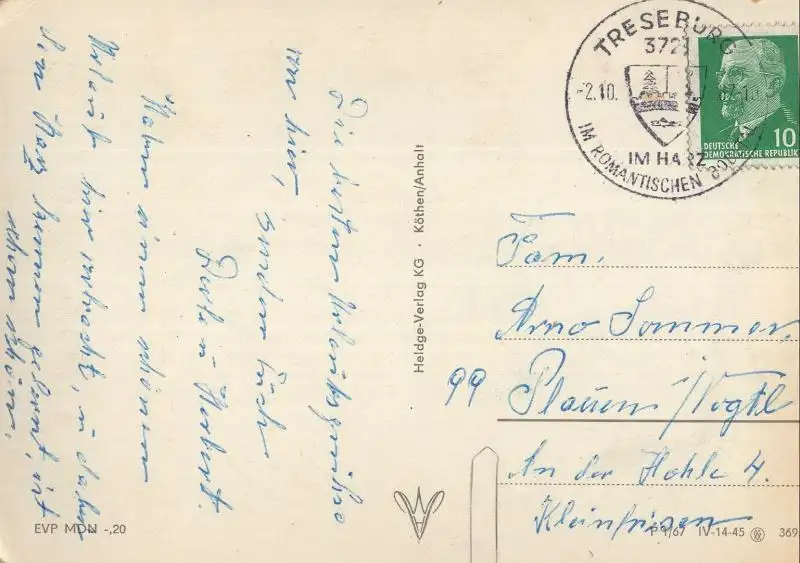 Die besten Urlaubsgrüße
von hier,
senden Euch
Herbert.
Haben einen schönen
Urlaub hier verbracht, u. dabei
den Harz kennen gelernt, ist
schön.
EVP MDN -,20
Heldge-Verlag KG · Köthen/Anhalt
TRESEBURG
372
-2.10.
IM HARZ
IM ROMANTISCHEN
10
DEUTSCHE
DEMOKRATISCHE REPUBLIK
Fam.
Arno Sommer.
99 Plauen i/Vogtl
An der Hohle 4.
Kleinfriesen
P 1/67 IV-14-45 369